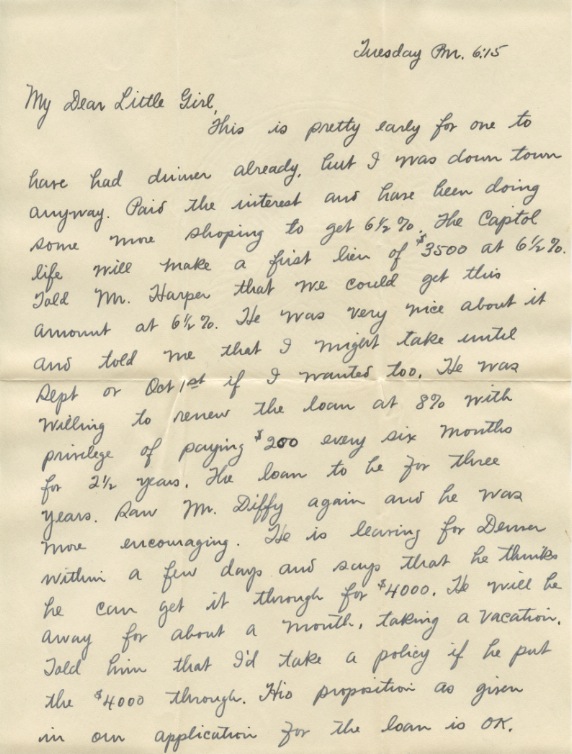 Tuesday Pm. 6:15
My Dear Little Girl,
This is pretty early for one to
have had dinner already, but I was down town
anyway. Paid the interest and have been doing
some more shoping to get 6½%. The Capitol
life will make a first lien of $3500 at 6½%.
Told Mr. Harper that we could get this
amount at 6½%. He was very nice about it
and told me that I might take until
Sept or Oct 1st if I wanted too. He was
willing to renew the loan at 8% with
privilege of paying $200 every six months
for 2½ years. The loan to be for three
years. Saw Mr. Diffy again and he was
more encouraging. He is leaving for Denver
within a few days and says that he thinks
he can get it through for $4000. He will be
away for about a month, taking a vacation.
Told him that I'd take a policy if he put
the $4000 through. His proposition as given
in our application for the loan is OK.